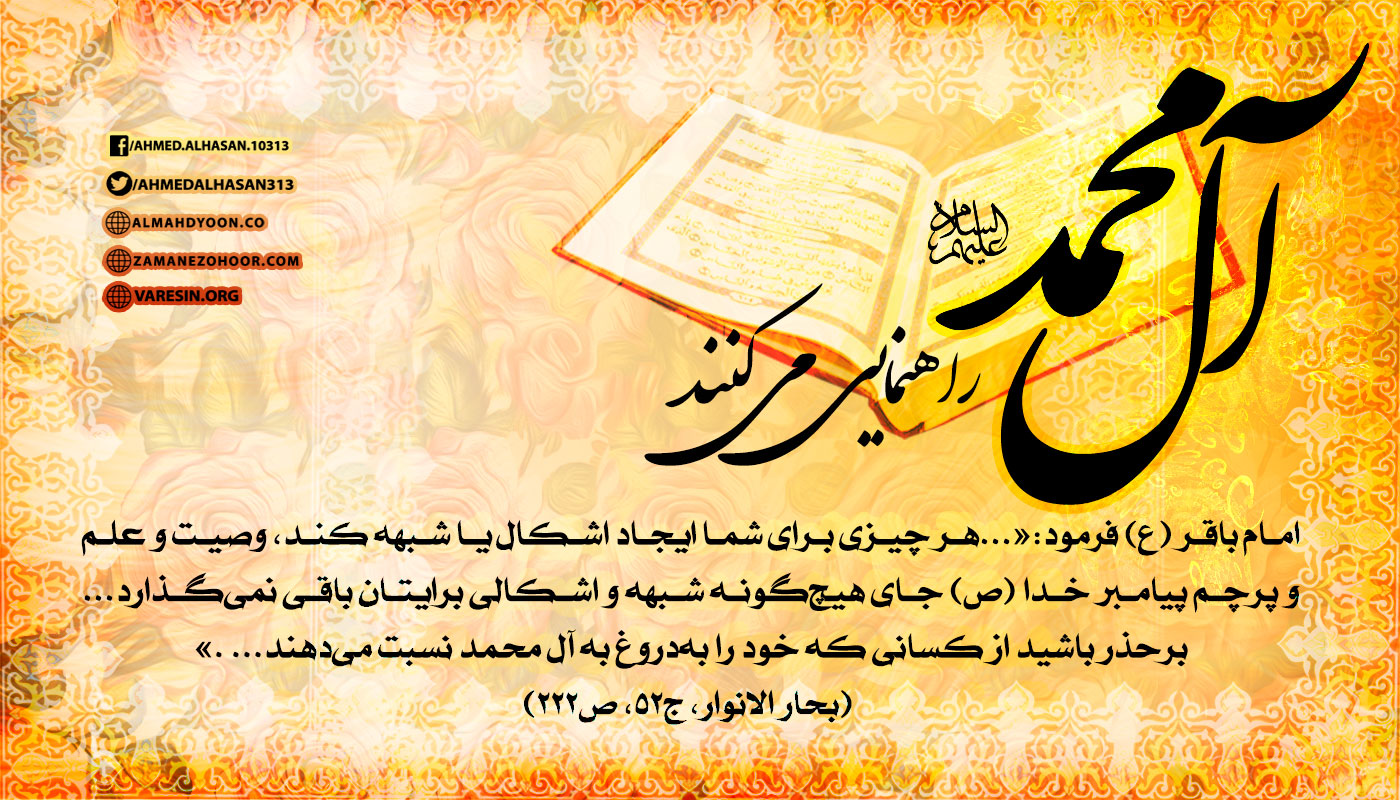 آل محمد
علیهم السلام
راهنمایی می کنند
/AHMED.ALHASAN.10313
/AHMEDALHASAN313
ALMAHDYOON.CO
ZAMANEZOHOOR.COM
VARESIN.ORG
امام باقر (ع) فرمود: «...هر چیزی برای شما ایجاد اشکال یا شبهه کند، وصیت و علم
و پرچم پیامبر خدا (ص) جای هیچ‌گونه شبهه و اشکالی برایتان باقی نمی‌گذارد...
برحذر باشید از کسانی که خود را به‌دروغ به آل محمد نسبت می‌دهند... .»
(بحار الانوار، ج۵۲، ص۲۲۲)